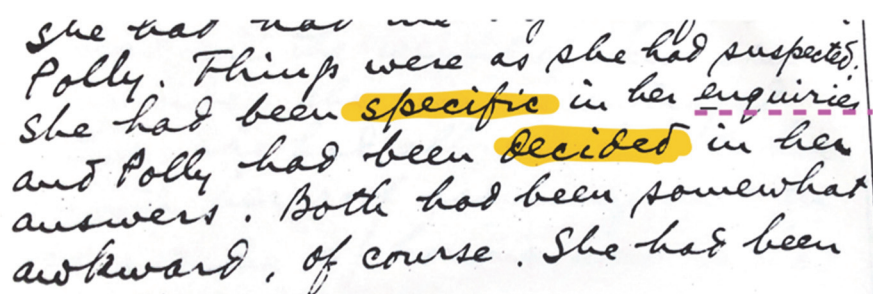 she had had
Polly. Things were as she had suspected.
She had been specific in her enquiries
and Polly had been decided in her
answers. Both had been somewhat
awkward, of course. She had been